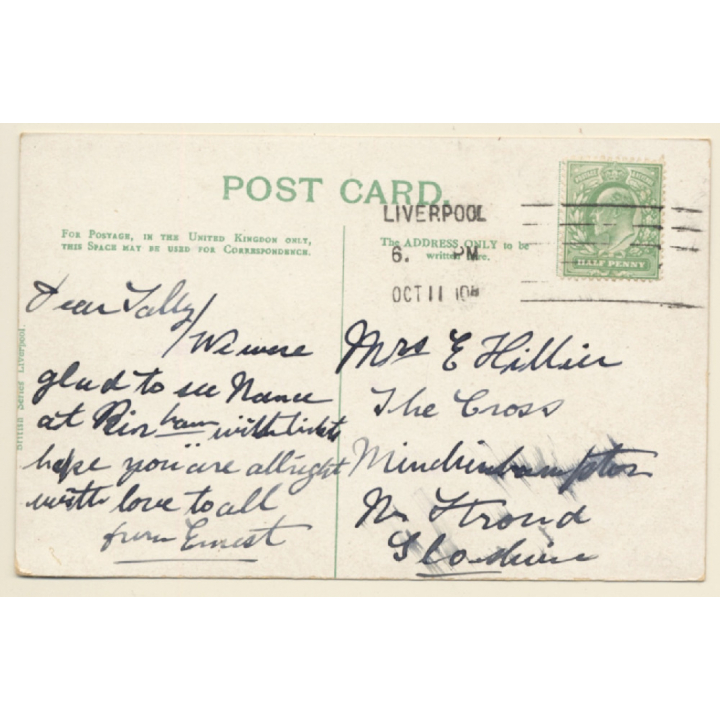 POST CARD.
FOR POSTAGE, IN THE UNITED KINGDOM ONLY,
THIS SPACE MAY BE USED FOR CORRESPONDENCE.
The ADDRESS ONLY to be
written here.
LIVERPOOL
6. PM
OCT 11
HALF PENNY
British Series Liverpool.
Dear Tally/
We were
glad to see Nance
at with tickets
hope you are allright
with love to all
from Ernest
Mrs E Hillier
The Cross
Minchinhampton
Nr Stroud
Glos